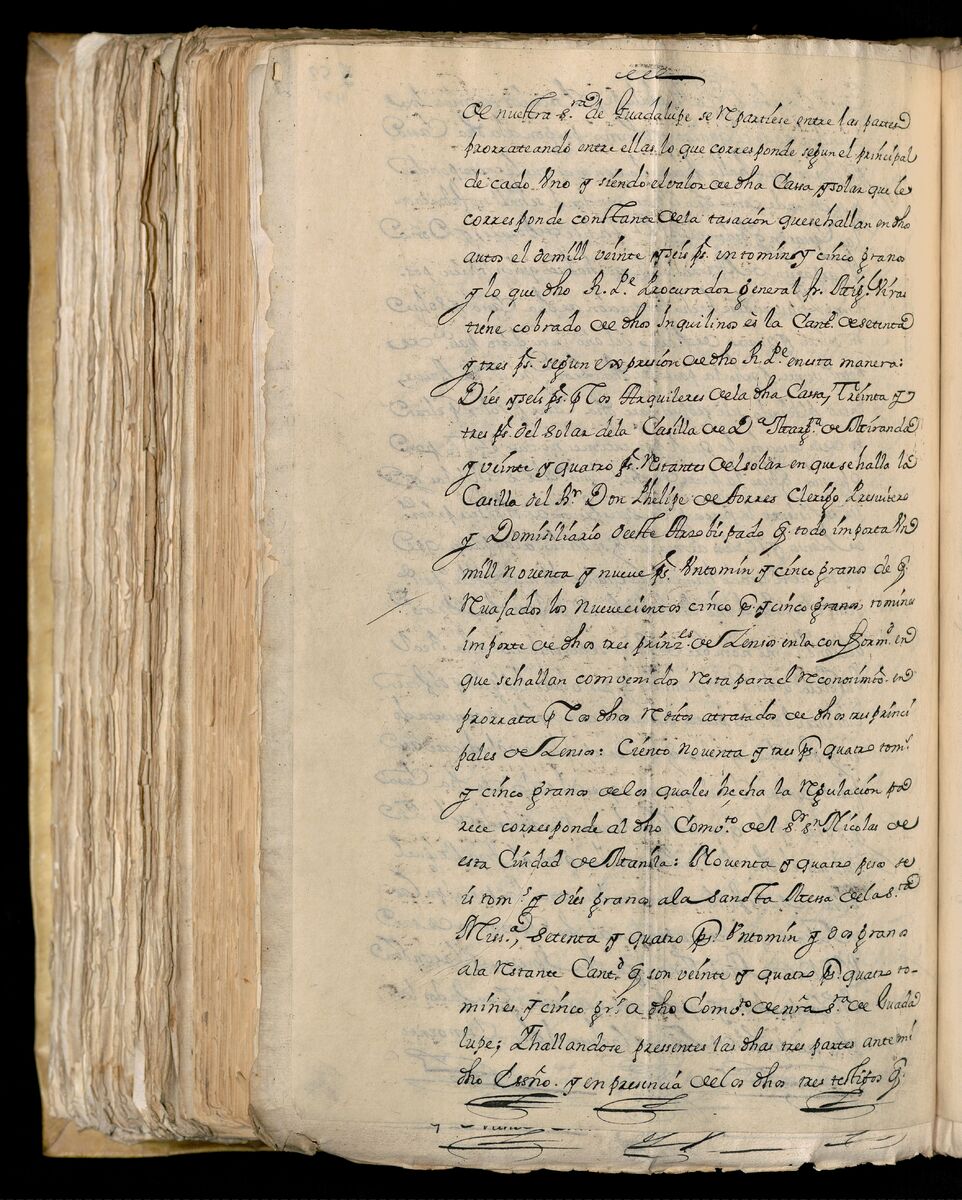 de nuestra S.ra de Guadalupe se Rpartiese entre las partes
prorrateando entre ellas lo que corresponde segun el principal
de cado Vno y siendo el valor de dha Cassa y solar que le
corresponde constante de la tasacion que se hallan en dho
autos el de mill veinte y seis ps. un tomin y cinco granos
y lo que dho R. Pe. Procurador general fr. Migl. Viras
tiene cobrado de dhos Inquilinos es la Cantd. de setenta
y tres ps. segun expresion de dho R. Pe. en esta manera:
Dies y seis ps. p Los Arquileres de la dha Cassa, Treinta y
tres ps. del solar de la Casilla de Da Margta. de Miranda
y veinte y quatro ps. Restantes del solar en que se halla la
Casilla del Br Don Phelipe de torres Clerigo Presvitero
y Domisiliario deeste Arzobispado q. todo importa Vn
mill noventa y nueve ps. Vn tomin y cinco granos de q.
Revasados los nuevecientos cinco p. y cinco granos, tomines
importe de dhos tres prinz.les de Zensos en la conformd. en
que se hallan comvenidos Resta para el Reconosimto. en
prorrata p Los dhos Reditos atrasados de dhos tres princi
pales de Zensos: Ciento noventa y tres ps. quatro toms
y cinco granos de los quales hecha la Regulacion pa
rece corresponde al dho Comv.to del Sor. Sn. Nicolas de
esta Ciudad de Manila: Noventa y quatro pesos se
is tom.s y dies granos a la Sancta Messa de la S.ta
Miss.a, Setenta y quatro ps. Vn tomin y dos granos
a la Restante Cantd. q son veinte y quatro ps. quatro to-
mines y cinco grs. a dho Comto. de nra Sra. de Guada
lupe; Thallandose pressentes las dhas tres partes ante mi
dho Essno. y en presencia de los dhos tres testigos q.